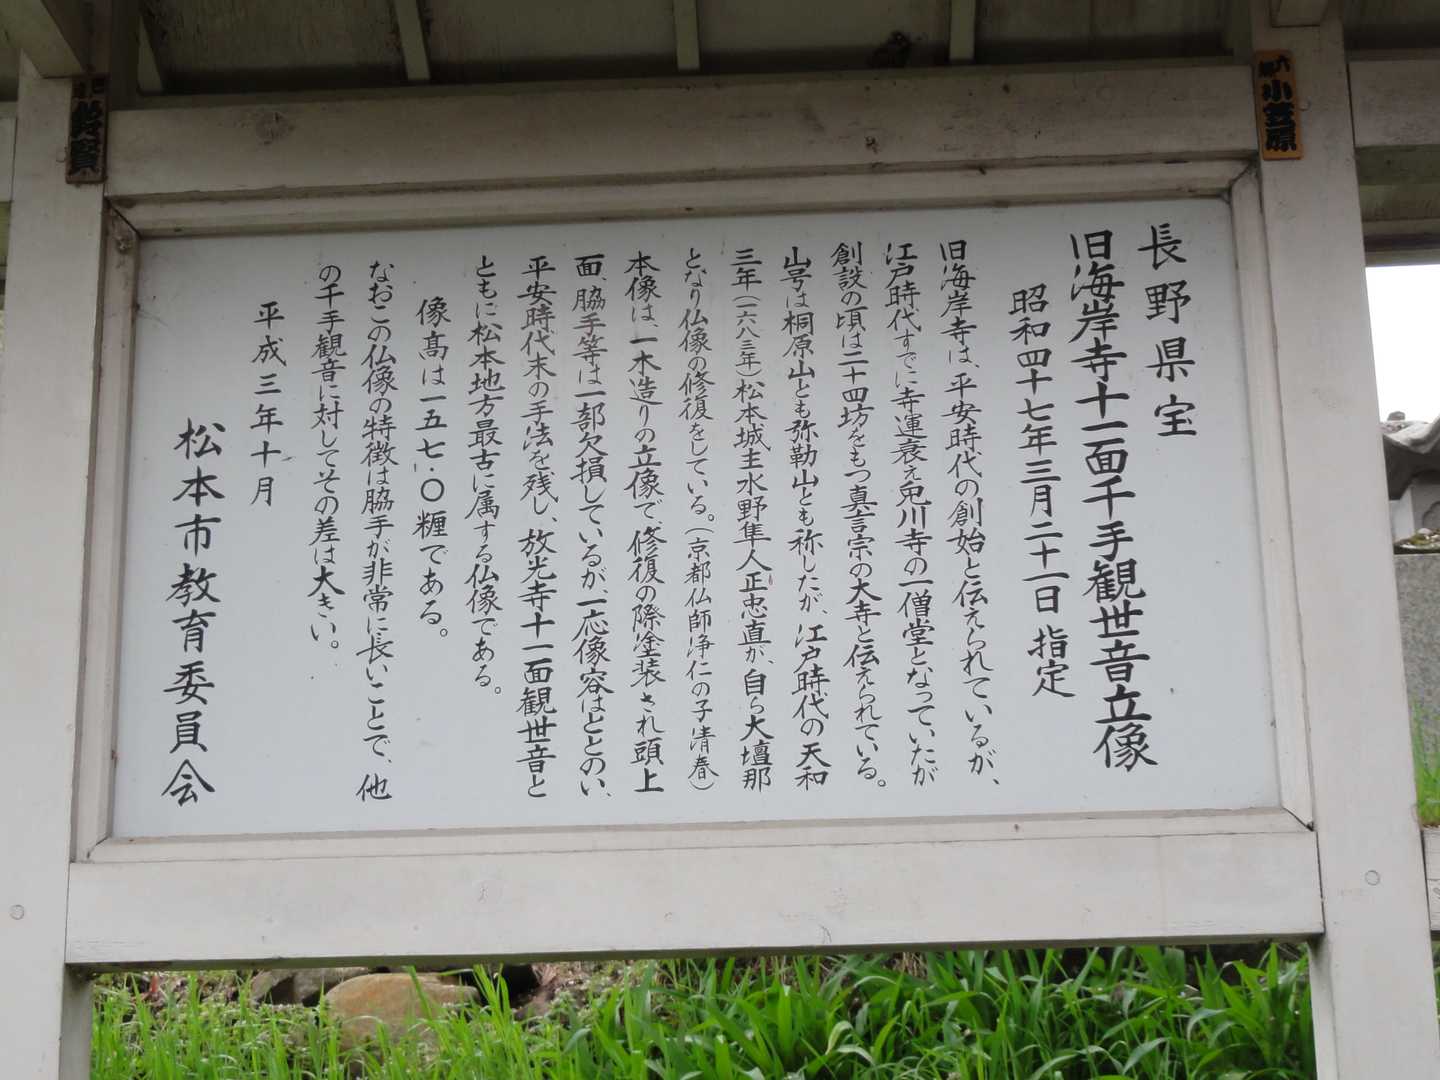 長野県宝
旧海岸寺十一面千手観世音立像
昭和四十七年三月二十一日 指定
旧海岸寺は、平安時代の創始と伝えられているが、
江戸時代すでに寺運衰え兎川寺の一僧堂となっていたが
創設の頃は二十四坊をもつ真言宗の大寺と伝えられている。
山号は桐原山とも弥勒山とも称したが、江戸時代の天和
三年(一六八三年)松本城主水野隼人正忠直が、自ら大壇那
となり仏像の修復をしている。(京都仏師浄仁の子清春)
本像は、一木造りの立像で、修復の際塗装され頭上
面、脇手等は一部欠損しているが、一応像容はととのい、
平安時代末の手法を残し、放光寺十一面観世音と
ともに松本地方最古に属する仏像である。
像高は一五七・〇糎である。
なおこの仏像の特徴は脇手が非常に長いことで、他
の千手観音に対してその差は大きい。
平成三年十月
松本市教育委員会
小笠原